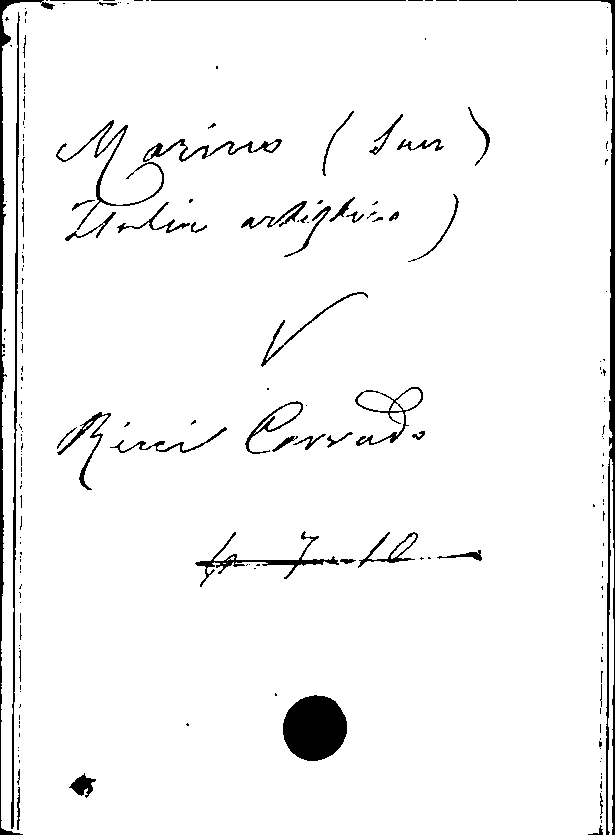 Marino (San)
Italia artistica)
V
Ricci Corrado